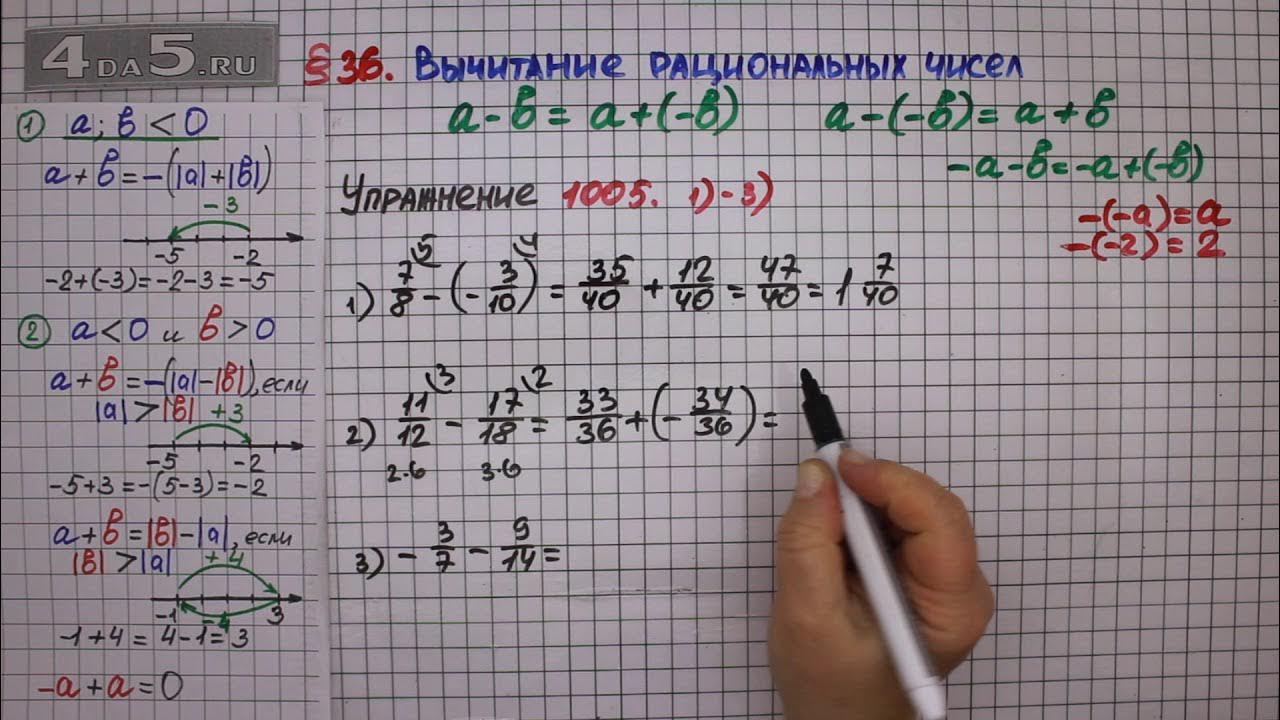 4DA5.RU
§36. Вычитание рациональных чисел
a-b = a+(-b) a-(-b)= a+b
-a-b=-a+(-b)
-(-a)=a
-(-2)=2
1) a; b < 0
a+b=-(|a|+|b|)
-3
-5 -2
-2+(-3)=-2-3=-5
2) a<0 и b>0
a+b=-(|a|-|b|), если
|a|>|b| +3
-5 -2
-5+3=-(5-3)=-2
a+b=|b|-|a|, если
|b|>|a| +4
-1 -4 3
-1+4= 4-1=3
-a+a=0
Упражнение 1005. 1)-3)
1) 7/8 \5 - (-3/10 \4) = 35/40 + 12/40 = 47/40 = 1 7/40
2) 11/12 \3 - 17/18 \2 = 33/36 + (-34/36) =
2·6 3·6
3) -3/7 - 9/14 =